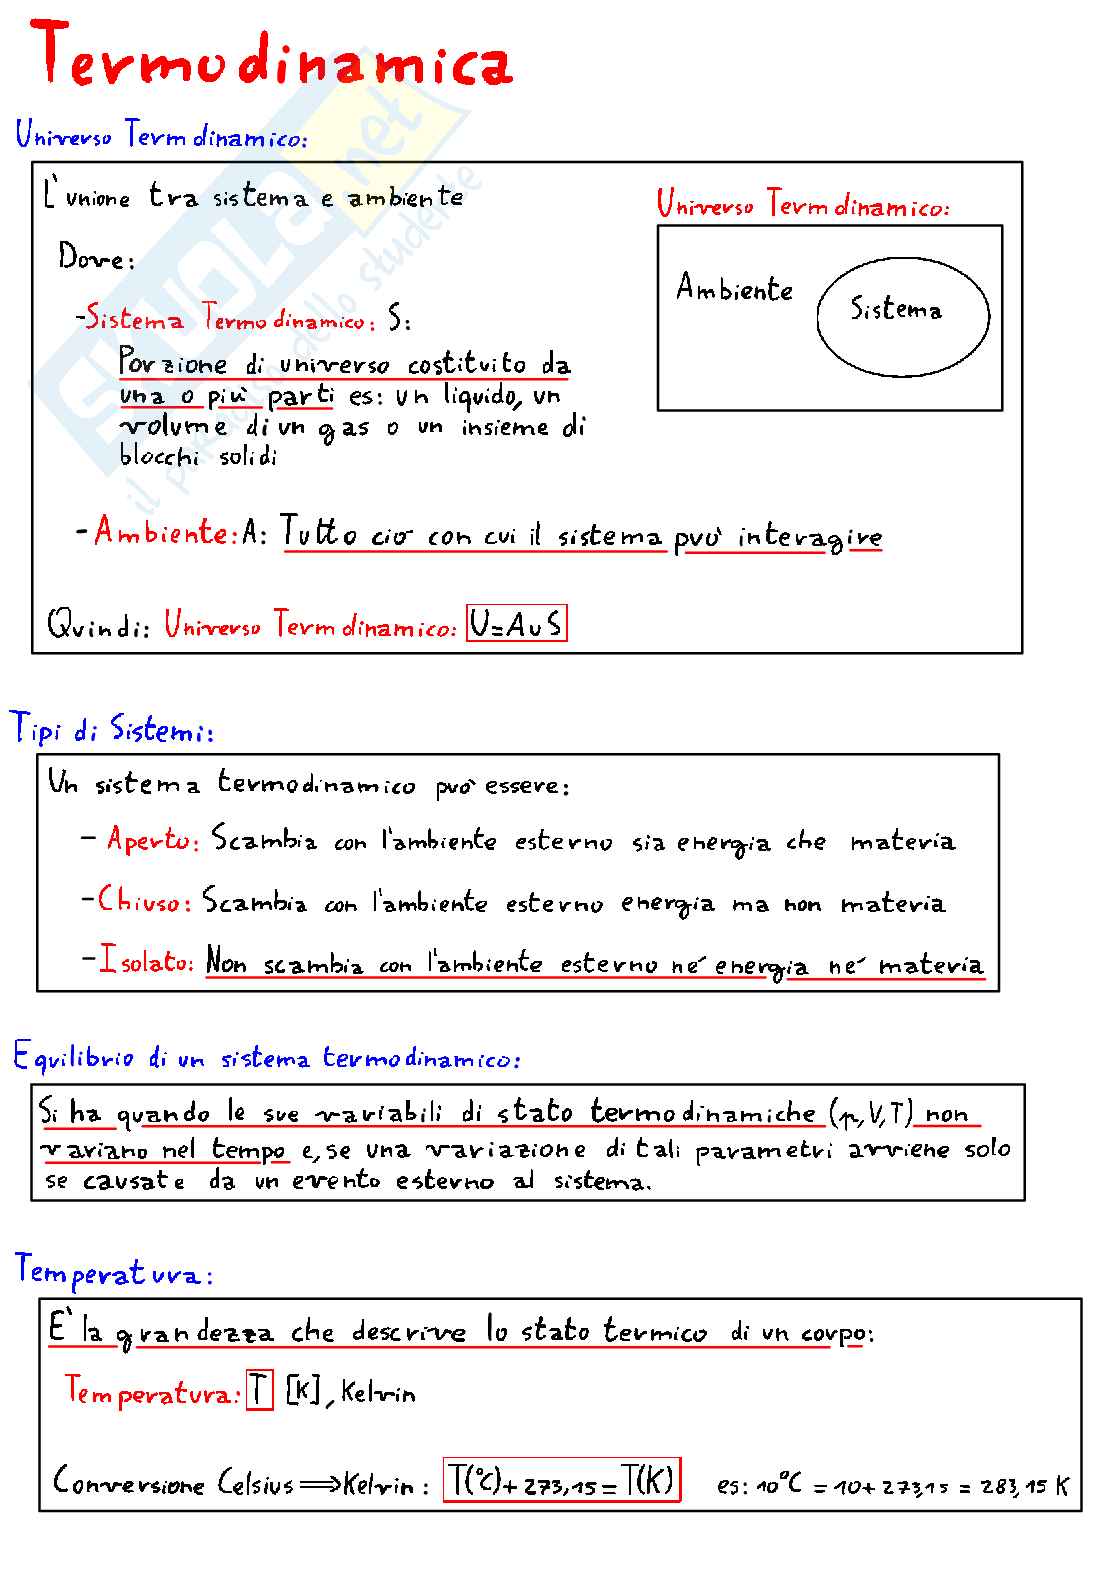 Termodinamica
Universo Termodinamico:
L'unione tra sistema e ambiente
Universo Termodinamico:
Ambiente
Sistema
Dove:
-Sistema Termodinamico: S:
Porzione di universo costituito da
una o più parti es: un liquido, un
volume di un gas o un insieme di
blocchi solidi
-Ambiente: A: Tutto ciò con cui il sistema può interagire
Quindi: Universo Termodinamico: U=A∪S
Tipi di Sistemi:
Un sistema termodinamico può essere:
- Aperto: Scambia con l'ambiente esterno sia energia che materia
-Chiuso: Scambia con l'ambiente esterno energia ma non materia
-Isolato: Non scambia con l'ambiente esterno né energia né materia
Equilibrio di un sistema termodinamico:
Si ha quando le sue variabili di stato termodinamiche (p,V,T) non
variano nel tempo e, se una variazione di tali parametri avviene solo
se causate da un evento esterno al sistema.
Temperatura:
E' la grandezza che descrive lo stato termico di un corpo:
Temperatura: T [K], Kelvin
Conversione Celsius⟹Kelvin: T(°C)+273,15=T(K) es: 10°C = 10+273,15 = 283,15 K
SKUOLA.net
il paradiso dello studente